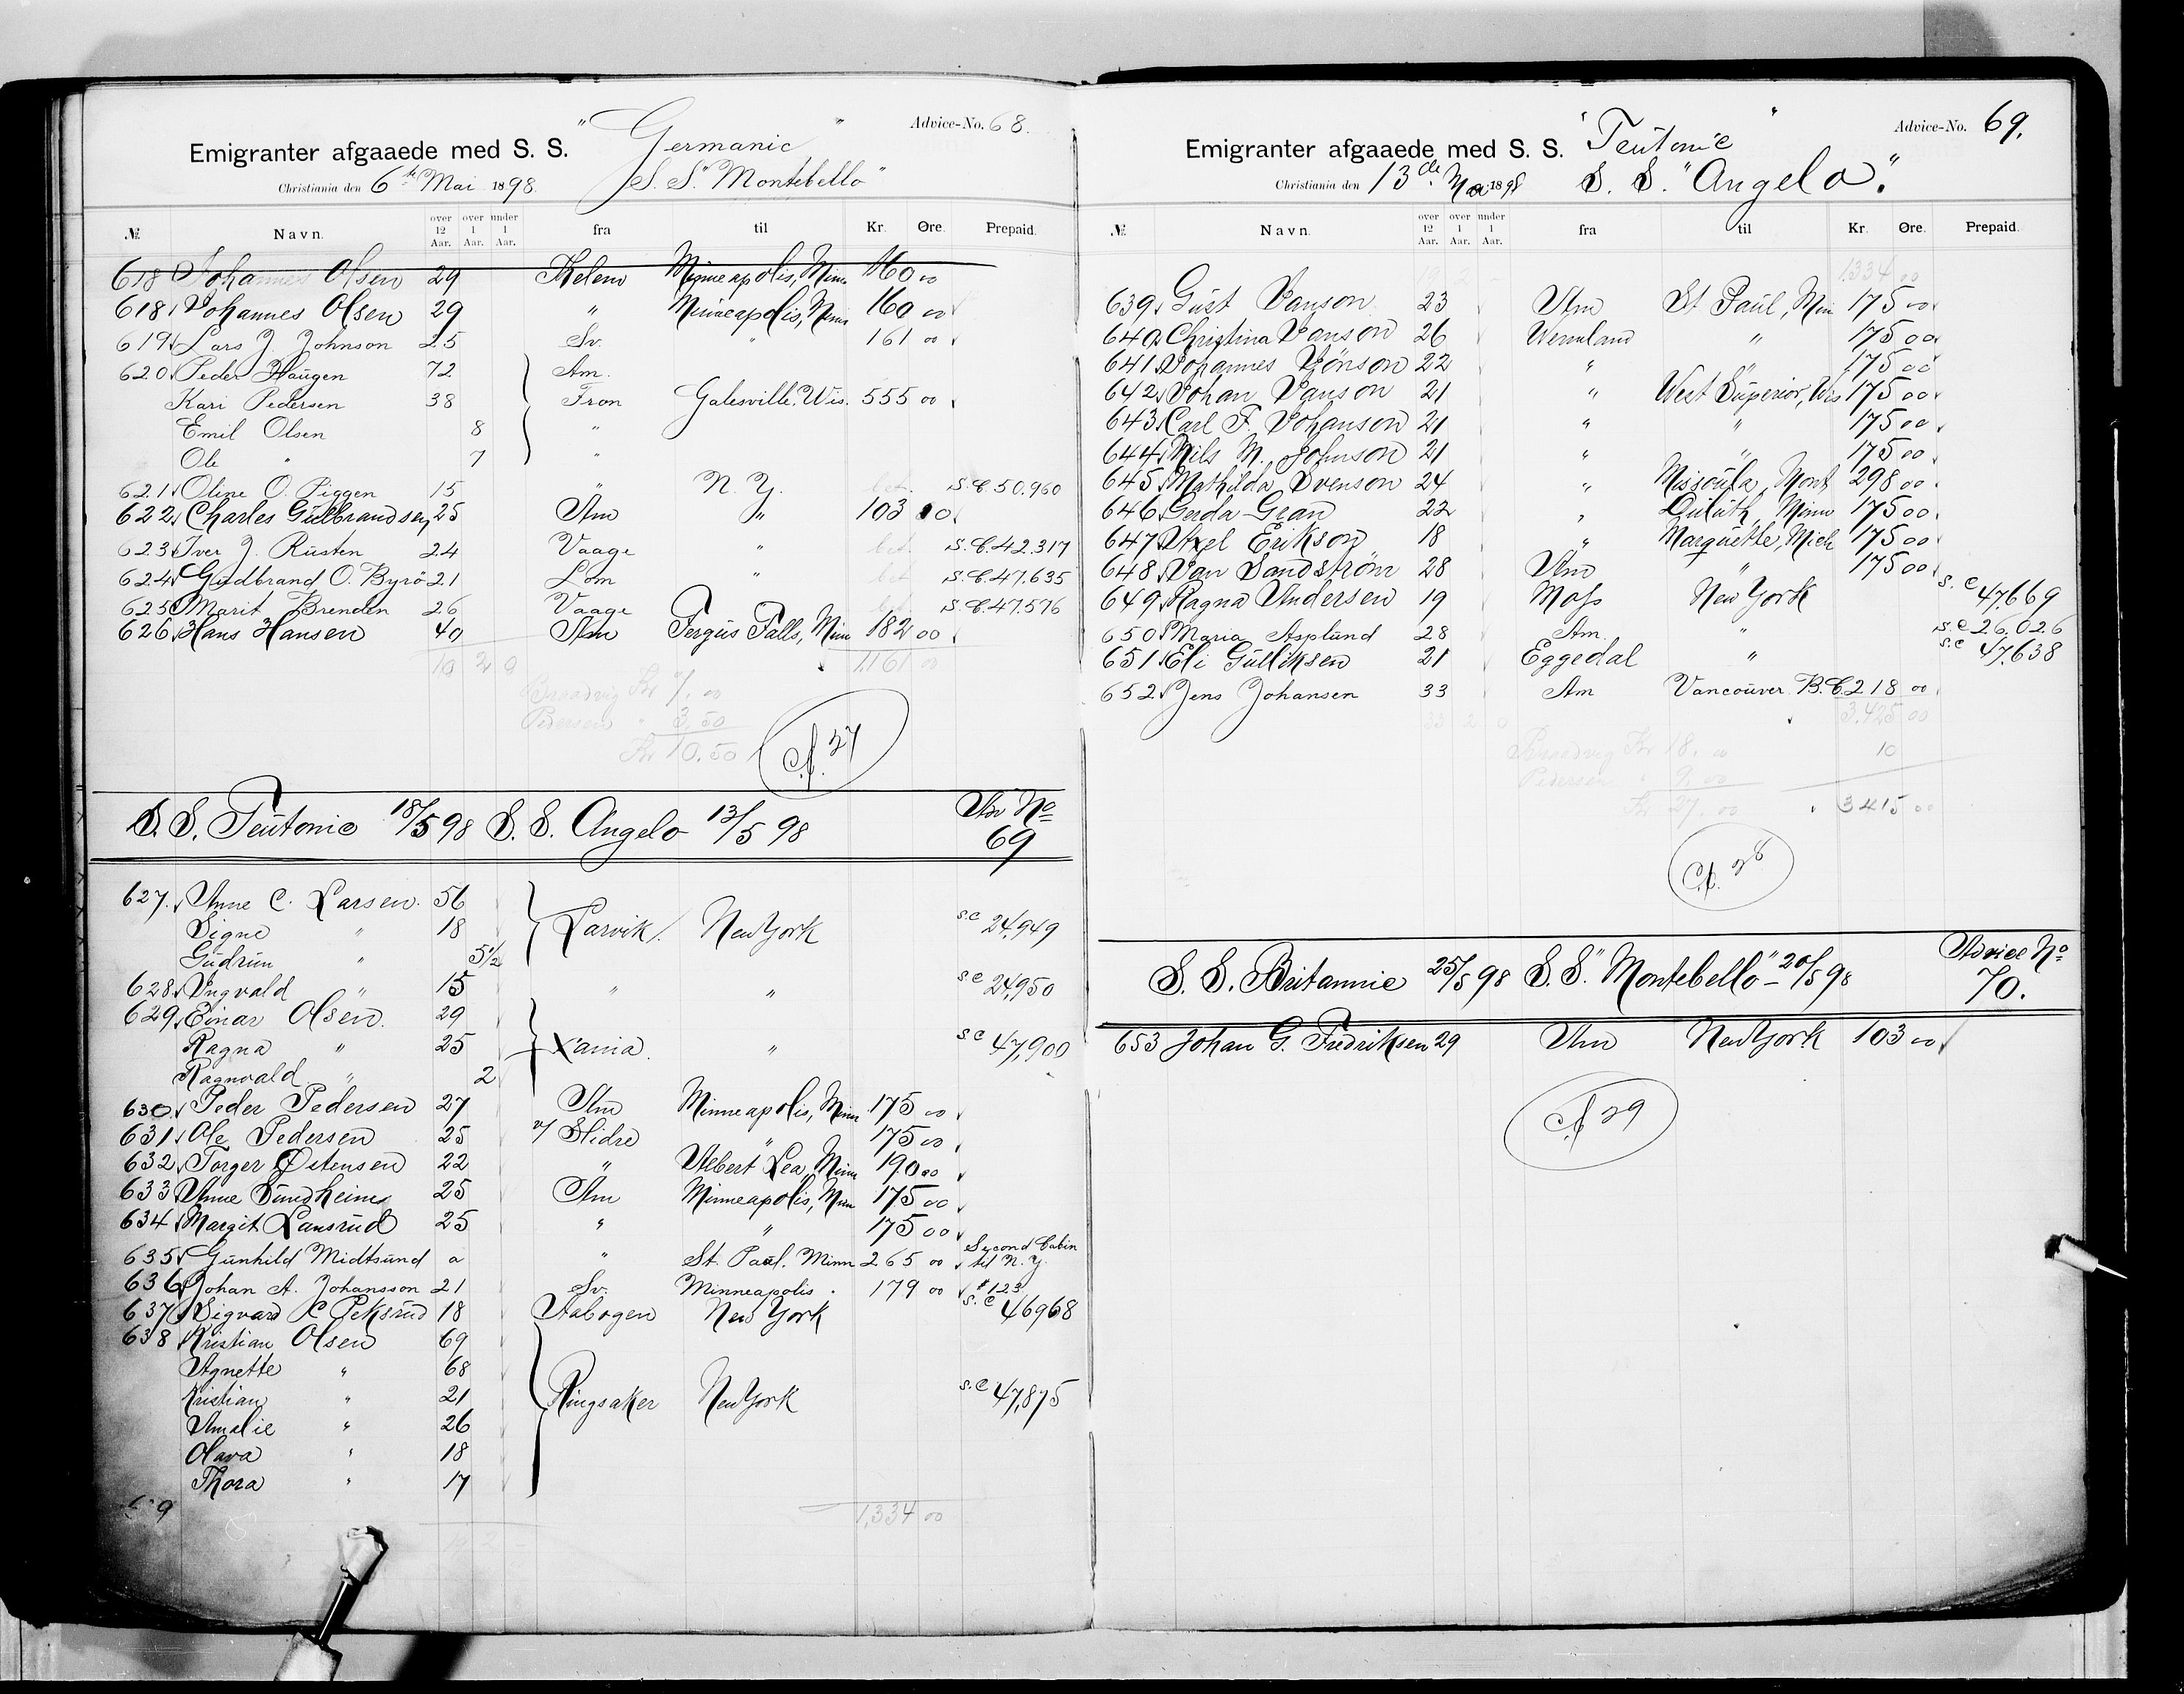 Emigranter afgaaede med S. S. " Germanic " Advice-No. 68.
Christiania den 6te Mai 1898. S. S. "Montebello"
№ Navn. over 12 Aar. over 1 Aar. under 1 Aar. fra til Kr. Øre. Prepaid.
618 Johannes Olsen 29 Thelem Minneapolis, Minn 160 00
618 Johannes Olsen 29 " Minneapolis, Minn 160 00
619 Lars J. Johnson 25 Sv. " 161 00
620 Peder Haugen 72 Am.
Kari Pedersen 38 Fron Galesville, Wis. 555 00
Emil Olsen 8 "
Ole " 7 "
621 Oline O. Piggen 15 " N. Y. bet. S.C. 50.960
622 Charles Gulbrandsen, 25 Am " 103 00
623 Iver J. Rusten 24 Vaage " bet. S.C. 42.317
624 Gudbrand O. Byrö 21 Lom " bet S.C. 47.635
625 Marit Brenden 26 Vaage " S.C. 47.576
626 Hans Hansen 40 Am Fergus Falls, Minn 182 00
10 2 0 1161 00
Braadvig Kr 7. 00
Pedersen " 3,50
Kr 10.50
cf. 27
S. S. Teutonic 18/5 98 S. S. Angelo 13/5 98 Av No 69
627. Anne C. Larsen. 56
Signe " 18 Larvik New York S.C 24,949
Gudrun " 5½
628 Ingvald " 15 " " S.C 24,950
629 Einar Olsen. 29
Ragna " 25 Xania. " S.C 47,900
Ragnvald " 2
630. Peder Pedersen 27 Am Minneapolis, Minn 175 00
631 Ole Pedersen 25 v/ Slidre " 175 00
632 Torger Østensen 22 " Albert Lea, Minn 190 00
633 Anne Sundheim 25 Am Minneapolis, Minn 175 00
634 Margit Lansrud 25 " " 175 00
635 Gunhild Midtsund a " St. Paul. Minn 265 00 Second Cabin til N. Y.
636 Johan A. Johansson 21 Sv. Minneapolis. 179 00 #123
637 Sigvard C Peksrud 18 Aabogen New York S.C 46968
638 Kristian Olsen 69
Agnette " 68
Kristian " 21 Ringsaker New York S.C 47,875
Amalie " 26
Olava " 18
Thora " 17
1,334 00
Emigranter afgaaede med S. S. " Teutonic " Advice-No. 69.
Christiania den 13de Mai 1898 S. S. "Angelo".
№ Navn. over 12 Aar. over 1 Aar. under 1 Aar. fra til Kr. Øre. Prepaid.
1334 00
639 Gust Janson 23 Am St Paul, Min 175 00
640 Christina Janson 26 Wermland " 175 00
641 Johannes Jönson 22 " " 175 00
642 Johan Janson 21 " West Superior, Wis 175 00
643 Carl F. Johanson 21 " " 175 00
644 Nils M. Johnson 21 " " 175 00
645 Mathilda Svenson 24 " Missoula, Mont 298 00
646 Gerda Gran 22 " Duluth, Minn 175 00
647 Axel Erikson 18 " Marquette, Mich 175 00
648 Jan Sandström 28 Am " 175 00
649 Ragna Andersen 19 Moss New York S.C 47,669
650 Maria Asplund 28 Am. " S.C 26.026
651 Eli Gulliksen 21 Eggedal " S.C 47,638
652 Jens Johansen 33 Am Vancouver B.C. 218 00
33 2 0 3,425 00
Braadvig Kr 18. 00 10
Pedersen " 9,00
Kr. 27. 00 3415 00
cf. 28
S. S. Britannic 25/5 98 S. S. "Montebello" 20/5 98 Advice No 70.
653 Johan G. Fredriksen 29 Am New York 103 00
cf 29